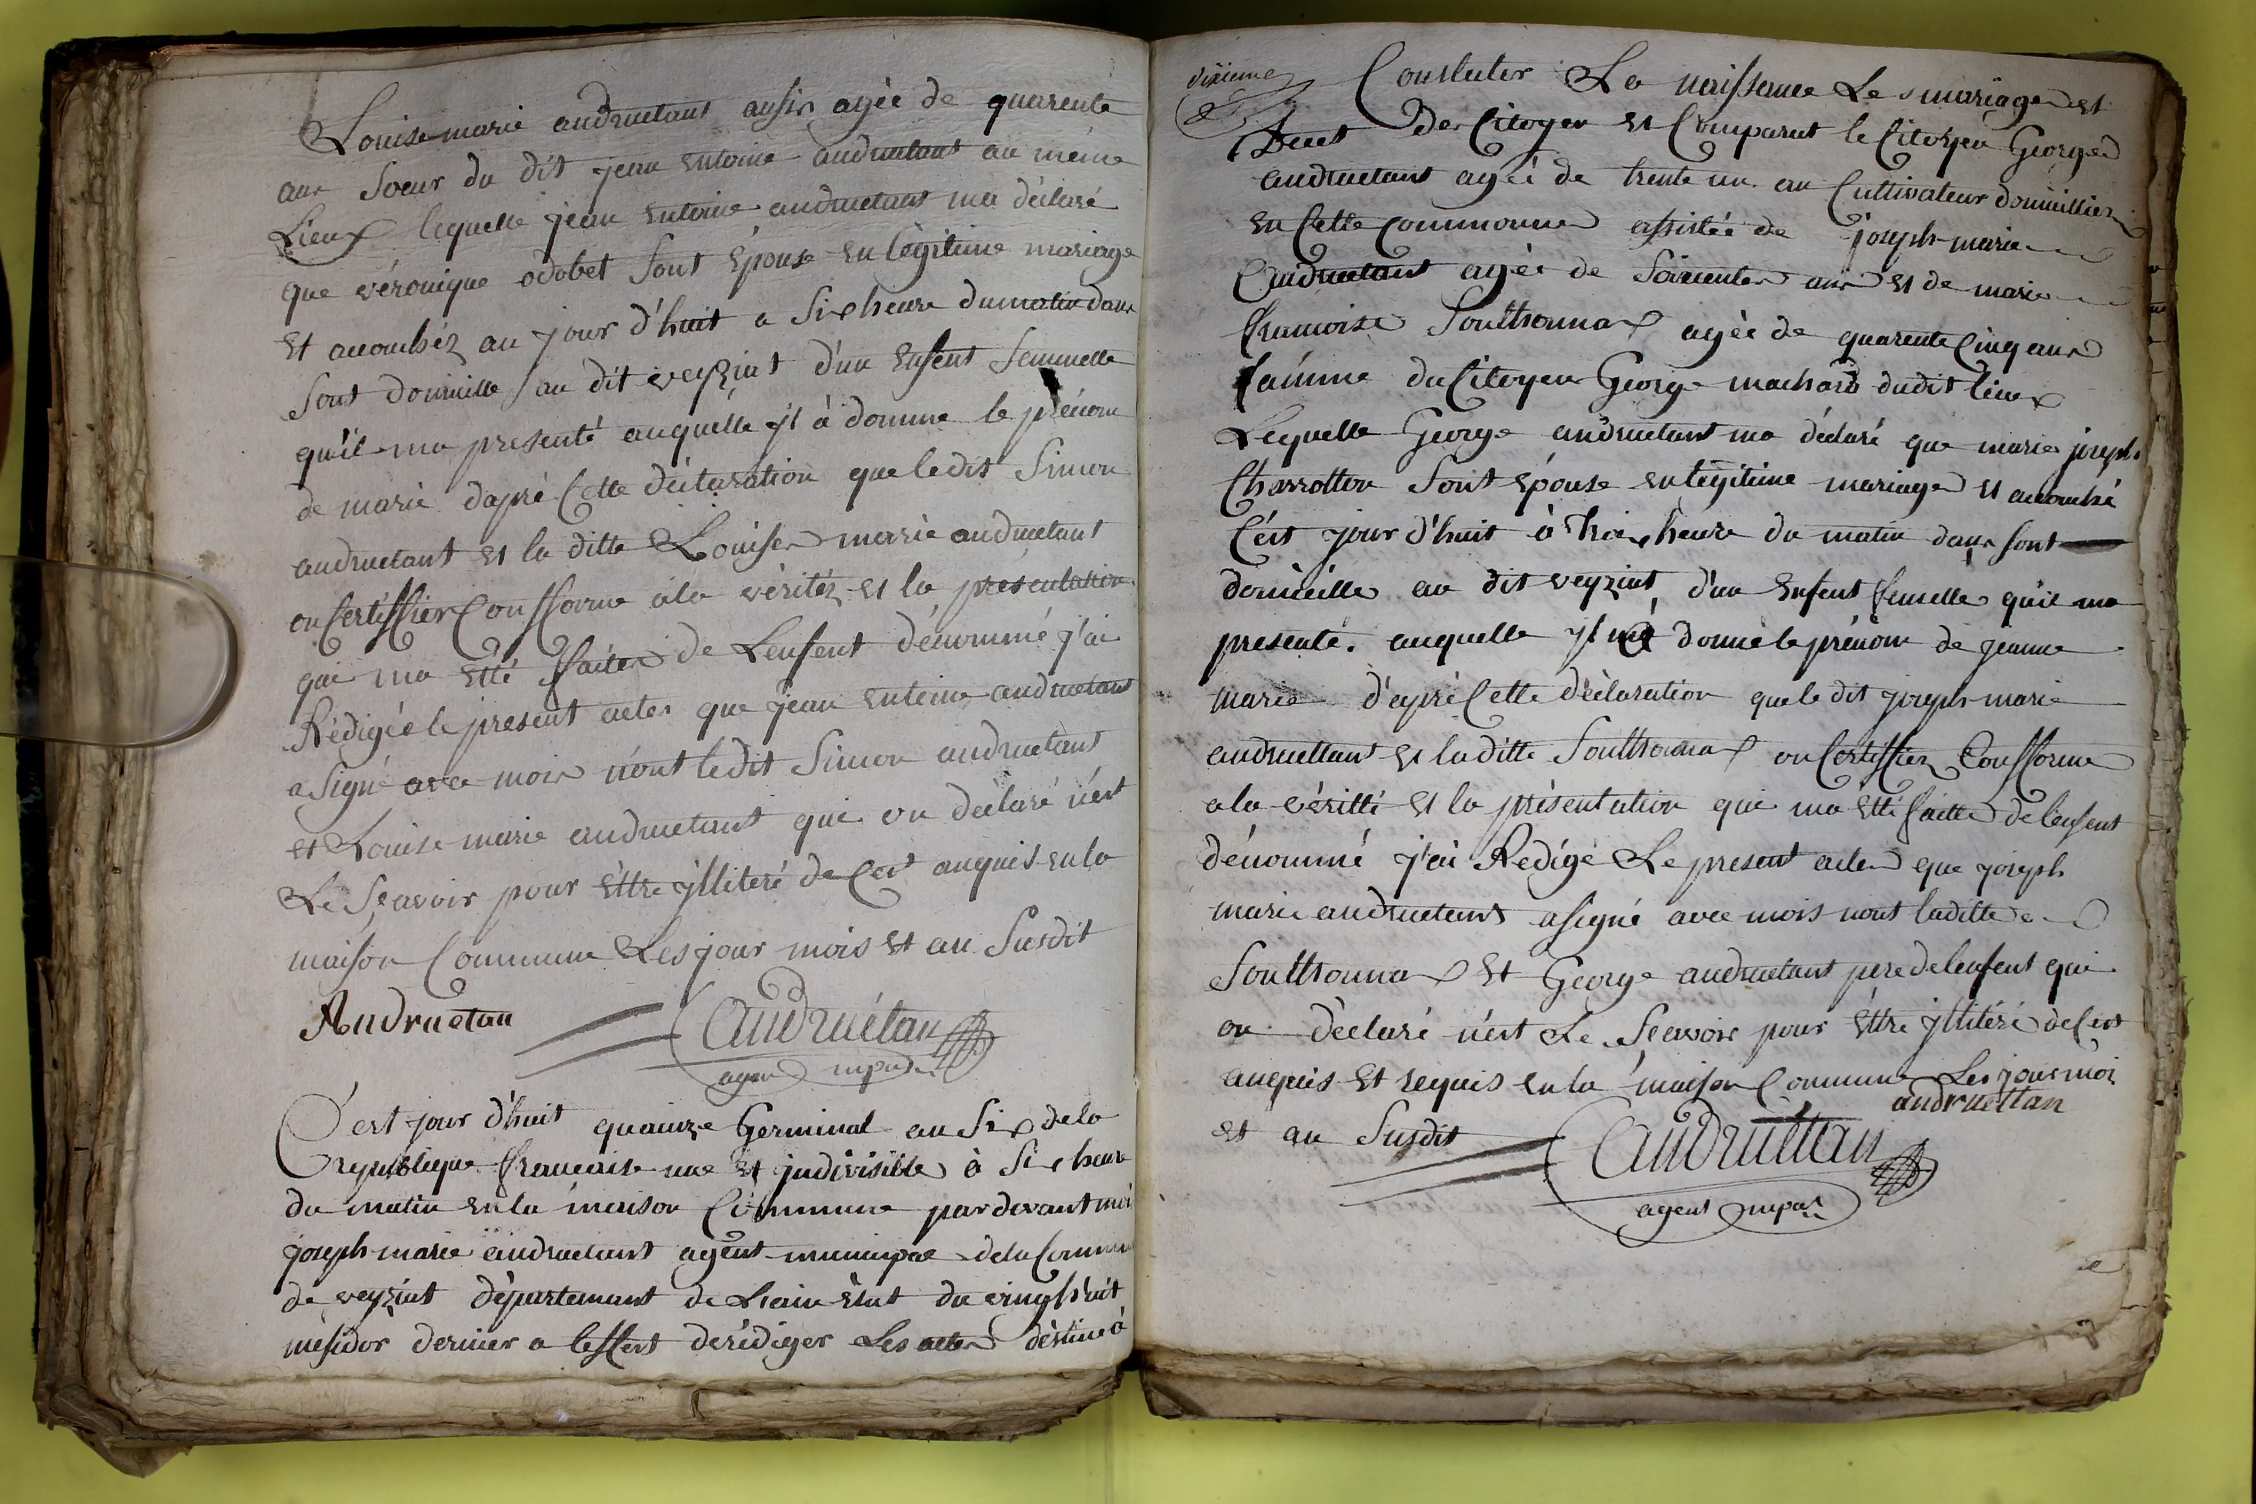 Louise marie andruetant ausis agèe de quarente
ans Soeur du dit jean entoine andruetant au même
Lieux lequelle jean entoine andruetant ma déclaré
que véronique odobet sont épouse en légitime mariage
et acouchéz au jour d'huit a Six heure du matin dans
sont domicille au dit veyziat d'un enfent femmelle
qu'il ma presenté auquelle yl à donne le prénom
de marie dapré Cette déclaration que le dit Simon
andruetant et la ditte Louise marie andruetant
on Certiffier Confforme àla véritéz et la présentation
qui ma etté faites de Lenfent dénommé j'ai
Rédigée le present actes que jean entoine andruetant
a Signé avec mois n'ont le dit Simon andruetant
et Louise marie andruetant qui on déclaré n'est
Le Sçavoir pour èttre ylliteré de Cest anquis en la
maison Commune Les jour mois et an Susdit
Andruetan
Andruétan
agent mpal
C'est jour d'huit quainze Germinal an Six de la
republique francaise une et jndivisible à Six heure
du matin en la maison Commune par devant moi
joseph marie andruetant agent municipal de la Commune
de veyziat département de Lain élut du vingt huit
mésidor dernier a leffert derédiger Les actes destiné à
dixieme
Constater La naissance Les mariages et
Décet des Citoyen et Comparut le Citoyen George
andruetant agéé de trente un an Cultivateur domicillier
en Cette Commonne assistée de joseph marie
andruetant agèe de Soixentes ans et de marie
francoise Soutthonnax agèe de quarente Cinq ans
famme du Citoyen George machard dudit lieux
Lequelle George andruetant ma déclaré que marie joseph
Charrotton Sont épouse en légitime mariage et acouché
C'est jour d'huit à troix heure du matin dans Sont
domicille au dit veyziat d'un enfent femelle qu'il ma
presenté. auquelle yl à donné le prénom de jeanne
marie d'apré Cette déclaration que le dit joseph marie
andruettant et la ditte Soutthonnax on Certiffiez Confforme
a la véritté et la présentation qui ma etté faitte de l'enfent
dénommé j'ai Redigé Le present actes que joseph
marie andruetant a signé avec mois nont laditte
Soutthonnax et George andruetant pere de lenfent qui
on déclaré n'est Le Sçavoir pour èttre ylliteré de Cest
anquis et requis en la maison Commune Les jour moi
et an Susdit
andruettan
Andruéttan
agent mpal